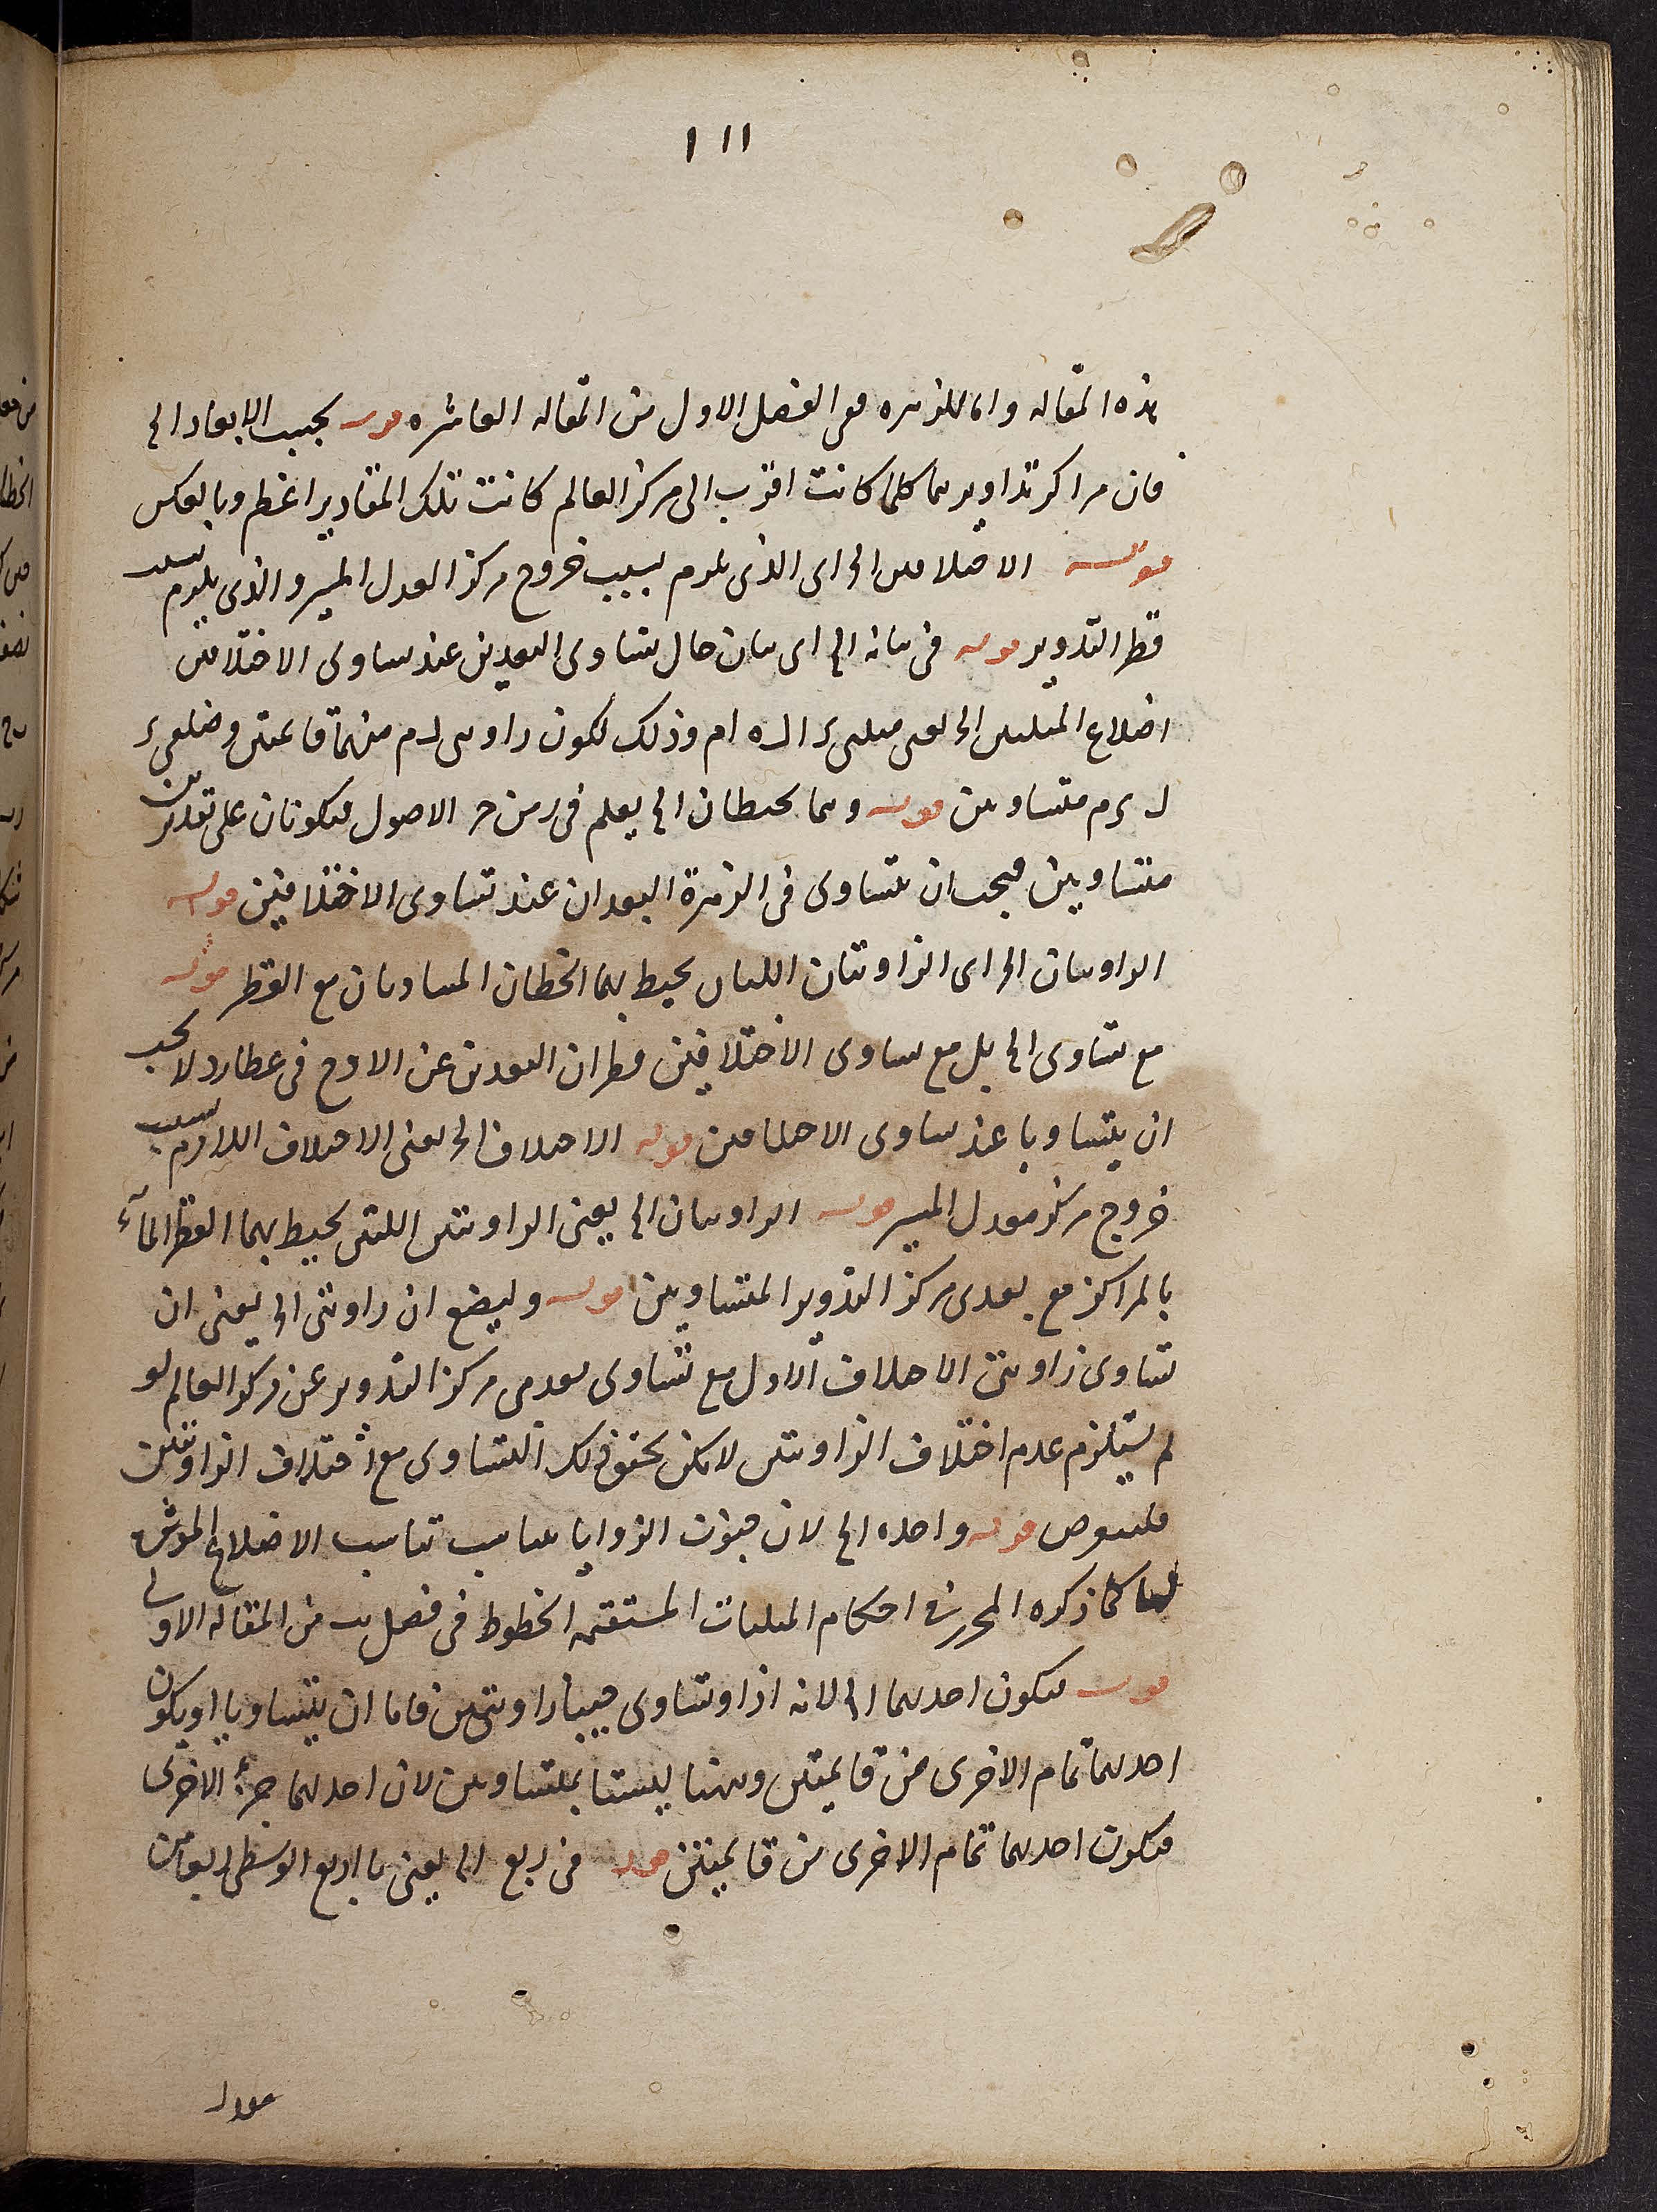 ١١١
هذه المقاله واما للزهره ففى الفصل الاول من المقاله العاشره قوله بحسب الابعاد الى
فان مراكز تداويرهما كلما كانت اقرب الى مركز العالم كانت تلك المقادير اعظم وبالعكس
قوله الاختلافين الى اى الذى يلزم بسبب خروج مركز المعدل المسير والذى يلزم بسبب
قطر التدوير قوله فى بيانه الى اى بيان حال تساوى البعدين عند تساوى الاختلافين
اضلاع المثلثين الى لعنى وذلك لكون زاويتى منهما قايمتين وضلعى
متساويين قوله وهما يحيطان الى يعلم فى من الاصول فيكونان على تقدير
متساويين فيجب ان يتساوى فى الزهرة البعدان عند تساوى الاختلافين قوله
الزاويتان الى اى الزاويتان اللتان يحيط بهما الخطان المتساويان مع القطر قوله
مع تساوى الى بل مع تساوى الاختلافين فظهر ان البعدين عن الاوج فى عطارد لا يجب
ان يتساويا عند تساوى الاختلافين قوله الاختلاف الى يعنى الاختلاف اللازم بسبب
خروج مركز معدل المسير قوله الزاويتان الى يعنى الزاويتين اللتين يحيط بهما القطر المار
بالمراكز مع بعدى مركز التدوير المتساويين قوله وليضع ان زاويتى الى يعنى ان
تساوى زاويتى الاختلاف الاول مع تساوى بعدى مركز التدوير عن مركز العالم لو
لم يستلزم عدم اختلاف الزاويتين لامكن تحقق ذلك التساوى مع اختلاف الزاويتين
فليفرض قوله واحده الى لان جيوب الزوايا يناسب تناسب الاضلاع الموترة
لها كما ذكره المحرر فى احكام المثلثات المستقيمة الخطوط فى فصل من المقاله الاولى
قوله فيكون احديهما الى لانه اذا تساوى جيبا زاويتين فاما ان يتساويا او يكون
احديهما تمام الاخرى من قايمتين وههنا ليستا بمتساويين لان احديهما جزء الاخرى
فيكون احديهما تمام الاخرى من قايمتين قوله فى ربع الى يعنى باربع الوسطى